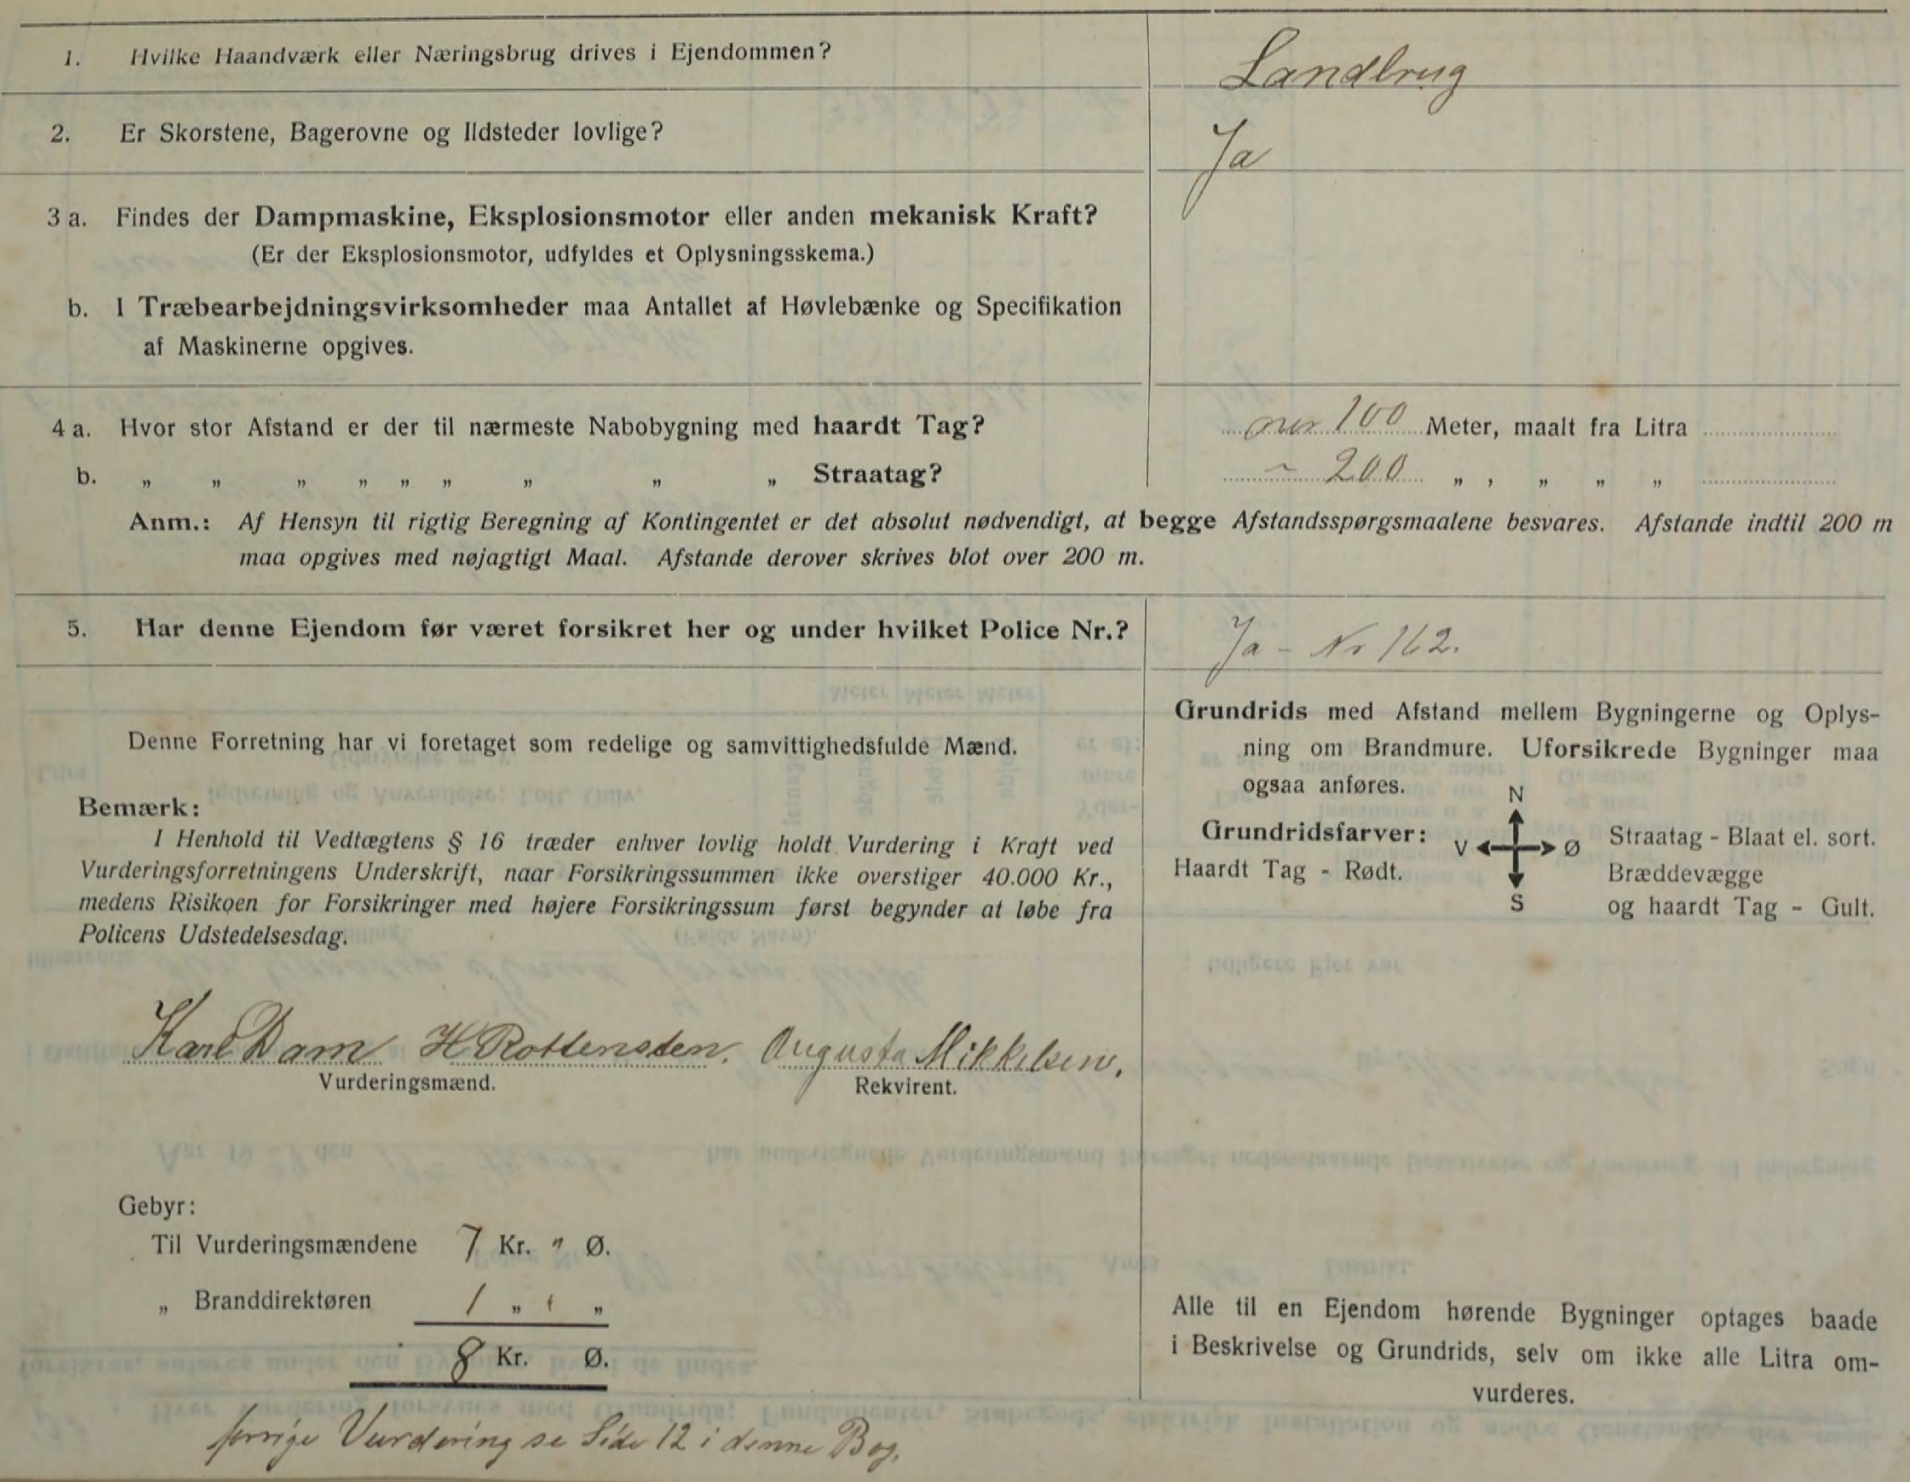 1. Hvilke Haandværk eller Næringsbrug drives i Ejendommen? Landbrug
2. Er Skorstene, Bagerovne og Ildsteder lovlige? Ja
3 a. Findes der Dampmaskine, Eksplosionsmotor eller anden mekanisk Kraft?
(Er der Eksplosionsmotor, udfyldes et Oplysningsskema.)
b. I Træbearbejdningsvirksomheder maa Antallet af Høvlebænke og Specifikation
af Maskinerne opgives.
4 a. Hvor stor Afstand er der til nærmeste Nabobygning med haardt Tag? over 100 Meter, maalt fra Litra
b. „ „ „ „ „ „ „ „ „ Straatag? ~ 200 „ , „ „ „
Anm.: Af Hensyn til rigtig Beregning af Kontingentet er det absolut nødvendigt, at begge Afstandsspørgsmaalene besvares. Afstande indtil 200 m
maa opgives med nøjagtigt Maal. Afstande derover skrives blot over 200 m.
5. Har denne Ejendom før været forsikret her og under hvilket Police Nr.? Ja - Nr 162.
Denne Forretning har vi foretaget som redelige og samvittighedsfulde Mænd.
Bemærk:
I Henhold til Vedtægtens § 16 træder enhver lovlig holdt Vurdering i Kraft ved
Vurderingsforretningens Underskrift, naar Forsikringssummen ikke overstiger 40.000 Kr.,
medens Risikoen for Forsikringer med højere Forsikringssum først begynder at løbe fra
Policens Udstedelsesdag.
Karl Dam H Rottensten. Augusta Mikkelsen.
Vurderingsmænd. Rekvirent.
Gebyr:
Til Vurderingsmændene 7 Kr. " Ø.
„ Branddirektøren 1 „ „
8 Kr. Ø.
forrige Vurdering se Side 12 i denne Bog.
Grundrids med Afstand mellem Bygningerne og Oplys-
ning om Brandmure. Uforsikrede Bygninger maa
ogsaa anføres.
N
Grundridsfarver: V Ø Straatag - Blaat el. sort.
Haardt Tag - Rødt. Bræddevægge
S og haardt Tag - Gult.
Alle til en Ejendom hørende Bygninger optages baade
i Beskrivelse og Grundrids, selv om ikke alle Litra om-
vurderes.